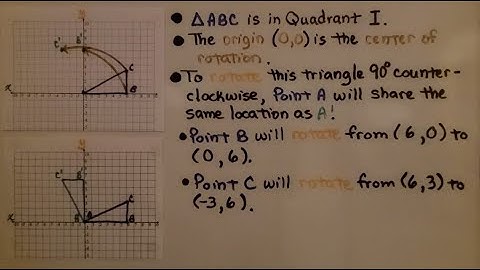 C' B'
C
B
x
• △ABC is in Quadrant I.
• The origin (0,0) is the center of
rotation.
• To rotate this triangle 90° counter-
clockwise, Point A will share the
same location as A'
• Point B will rotate from (6,0) to
(0,6).
• Point C will rotate from (6,3) to
(-3,6).
C' B'
C
B
x